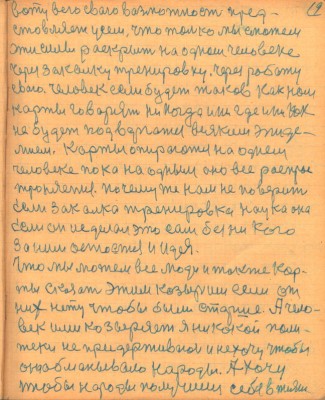 19
вот у него свого возможност пред-
ставляет целм, что только мы сможем
этисилы раскрыть на одном человеке
через закалку тренировку, через работу
свою. Человек сам будет таков Как нам
карты говорят ни когда или где или как
не будет подвергатся всяким эпиде-
миям. Карты опираются на одном
человеке пока на одным оно все распро
троняется. почему же нам не поверить
сам закалка тренировка наука она
сам он не делал это сам без ни кого
за ним остается и идея.
Что мы можем все люди и также кар-
ты сказат этим козырим если от
них нету чтобы были старше. А чело-
век ими козыряет я ни какой поли-
теки не придерживаюс и не хочу чтобы
она обманывало народы. А хочу
чтобы народы получили себя в жизни